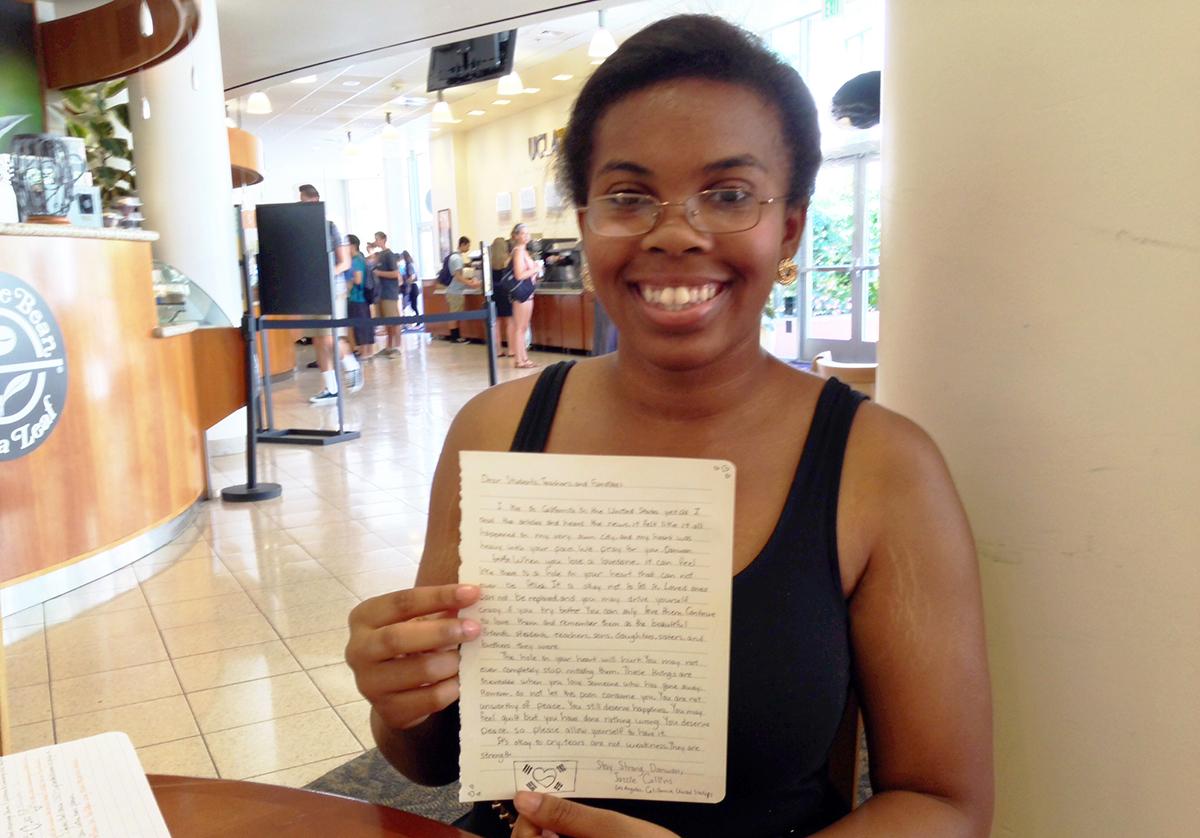 UCLA
e Bean
a Leaf
Dear Students, Teachers, and Families,
I live in California in the United States yet as I
read the articles and heard the news, it felt like it all
happened in my very own city and my heart was
heavy with your pain. We pray for you Danwon.
When you lose a loved one, it can feel
like there is a hole in your heart that can not
ever be filled. It is okay not to fill it. Loved ones
can not be replaced and you may drive yourself
crazy if you try to. You can only love them. Continue
to love them and remember them as the beautiful
friends, students, teachers, sons, daughters, sisters, and
brothers they were.
The hole in your heart will hurt. You may not
ever completely stop missing them. These things are
inevitable when you love someone who has gone away.
However, do not let this pain consume you. You are not
unworthy of peace. You still deserve happiness. You may
feel guilt but you have done nothing wrong. You deserve
peace so please allow yourself to have it.
It's okay to cry, tears are not weakness. They are
strength.
Stay Strong Danwon,
Collins
Los Angeles, California, United States